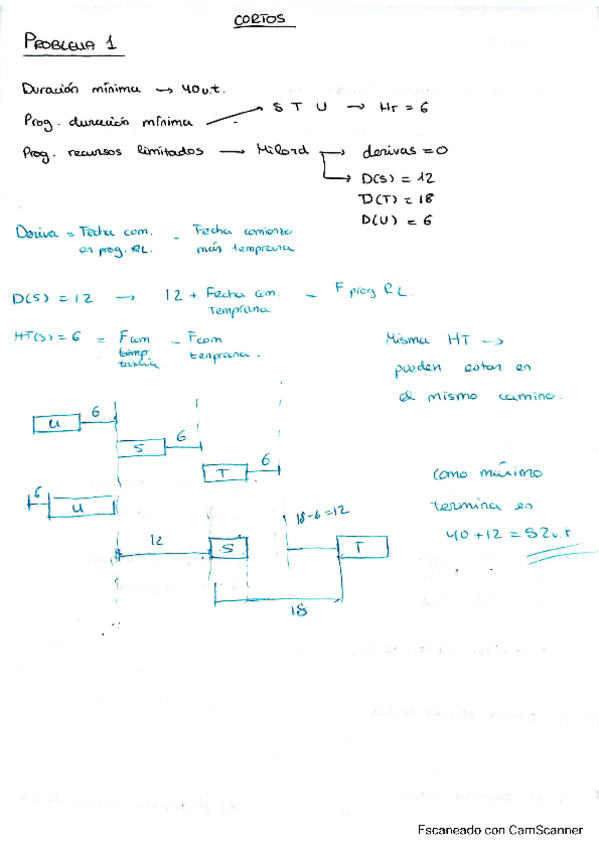 CORTOS
PROBLEMA 1
Duración mínima → 40 u.t.
Prog. duración mínima → S T U → HT = 6
Prog. recursos limitados → Milord → derivas = 0
→ D(S) = 12
D(T) = 18
D(U) = 6
Deriva = Fecha com. en prog. RL. - Fecha comienzo más temprana
D(S) = 12 → 12 + Fecha com. Temprana - F prog RL.
HT(S) = 6 = Fcom temp tardía - Fcom temprana.
Misma HT →
pueden estar en
el mismo camino.
U 6
S 6
T 6
6 U
12 S
18-6=12 T
18
como máximo
termina en
40+12 = 52 u.t
Escaneado con CamScanner